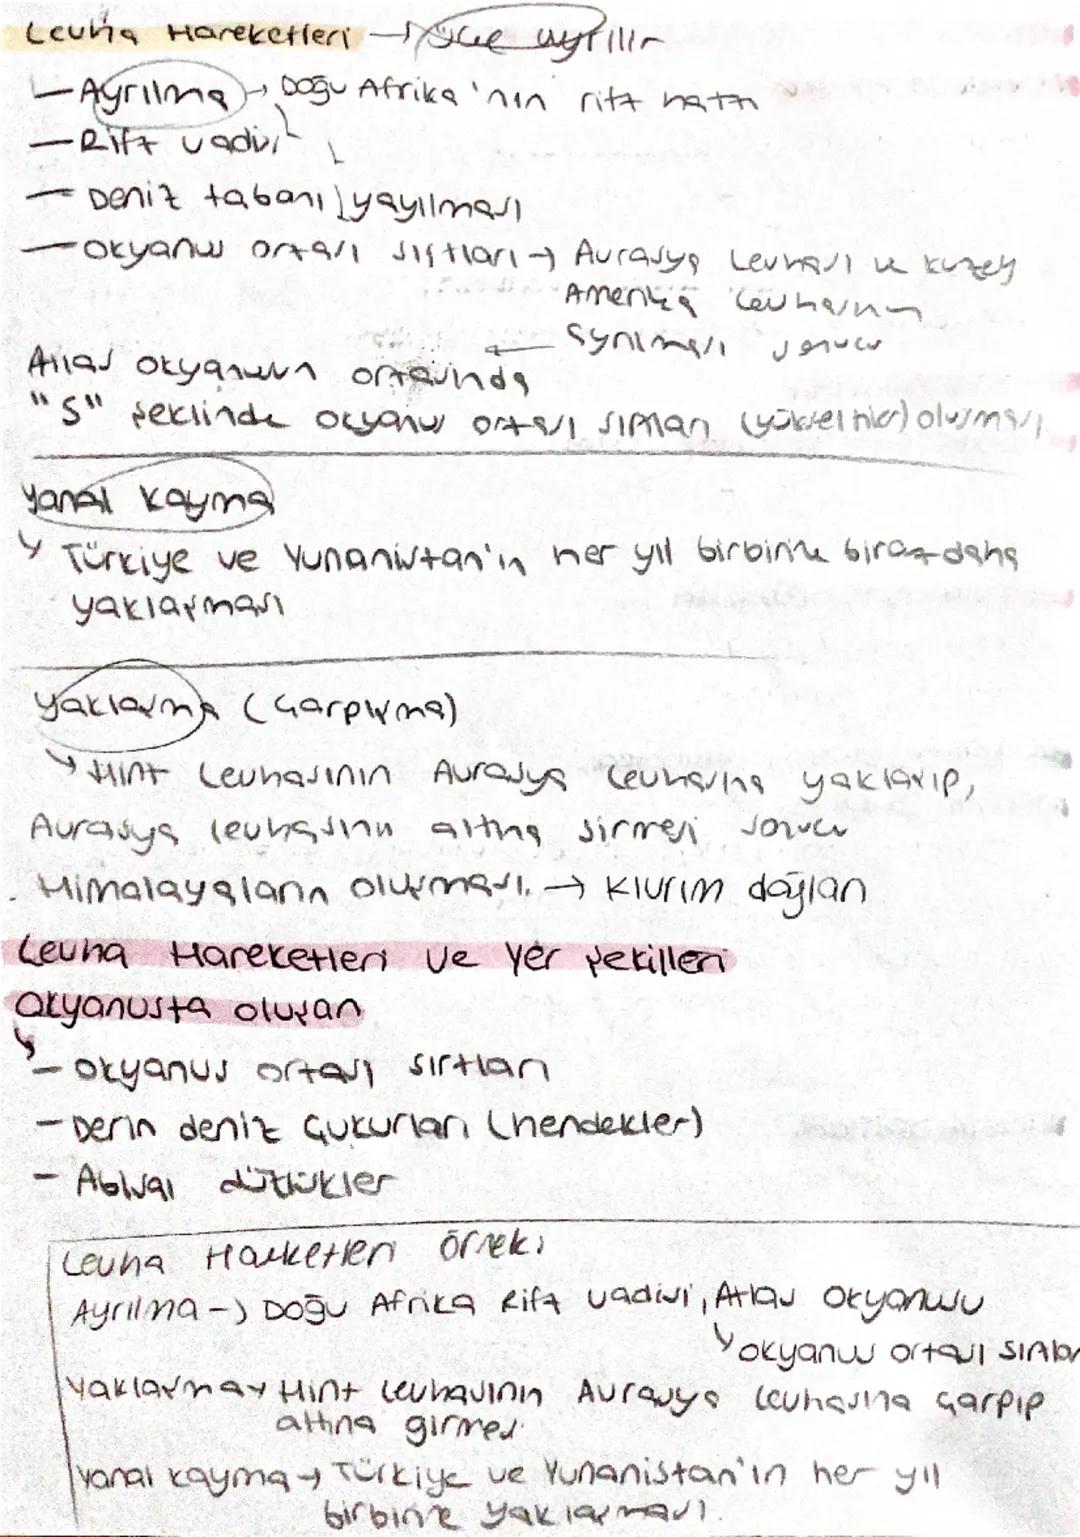 Levha Hareketleri → Üçe ayrılır
— Ayrılma → Doğu Afrika'nın rift hattı
— Rift vadisi
— Deniz tabanı yayılması
— Okyanus ortası sırtları → Avrasya Levhası ve Kuzey
Amerika Levhasının
ayrılması sonucu
Atlas Okyanusun ortasında
"S" şeklinde okyanus ortası sırtları (yükseltiler) oluşması
Yanal Kayma
Türkiye ve Yunanistan'ın her yıl birbirine biraz daha
yaklaşması
Yaklaşma (Çarpışma)
Hint Levhasının Avrasya Levhasına yaklaşıp,
Avrasya levhasının altına girmesi sonucu
Himalayaların oluşması. → Kıvrım dağları
Levha Hareketleri ve Yer Şekilleri
Okyanusta oluşan
— Okyanus ortası sırtları
— Derin deniz Çukurları (hendekler)
— Abisal düzlükler
Levha Hareketleri örneki
Ayrılma → Doğu Afrika Rift vadisi, Atlas Okyanusu
okyanus ortası sırtları
Yaklaşma → Hint levhasının Avrasya levhasına çarpıp
altına girmesi
Yanal kayma → Türkiye ve Yunanistan'ın her yıl
birbirine yaklaşması.